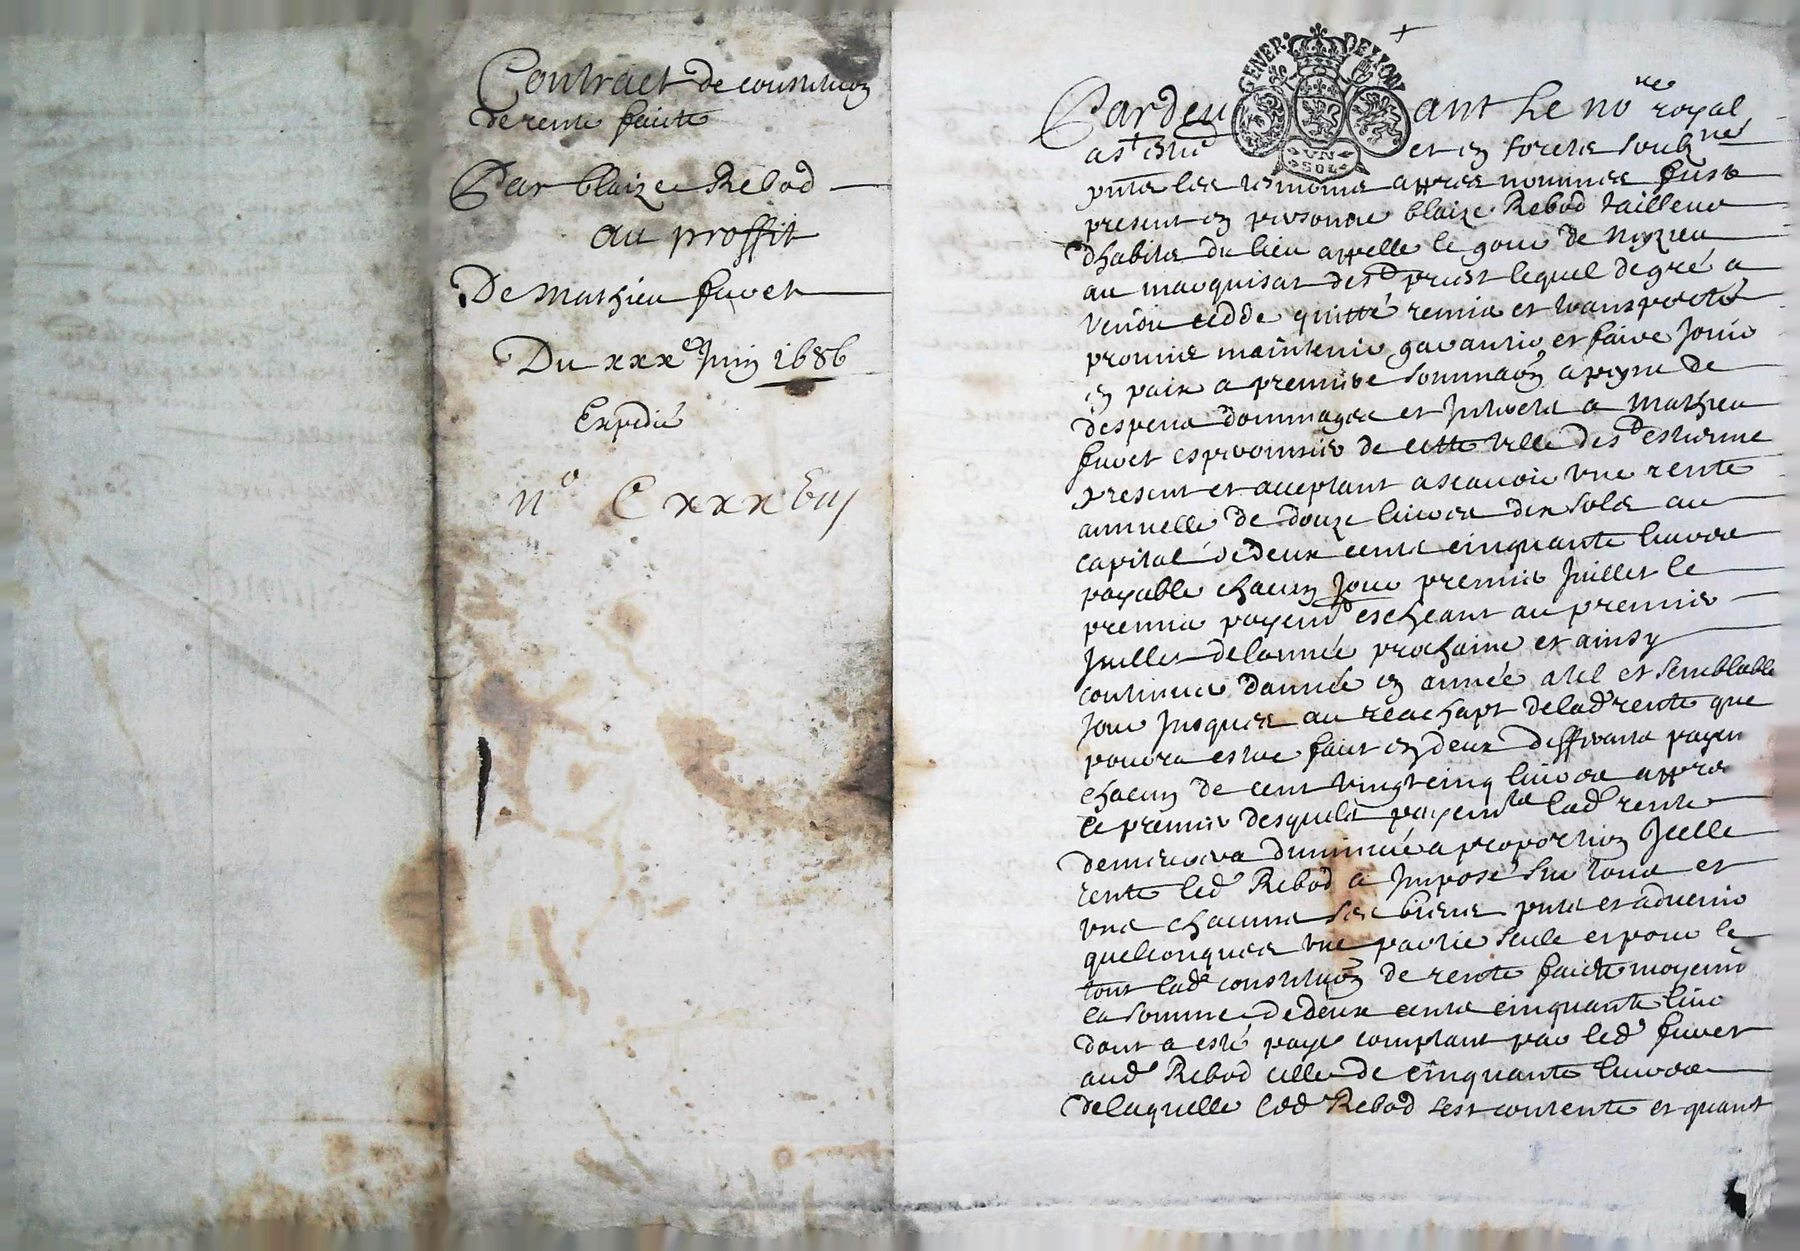 Contract de constituon
de rente faicte
Par blaize Rebod
au proffit
De Mathieu fuvet
Du xxxe Juin 1686
Expedié
n° C xxx
GENER DE LYON
UN
SOL
Pardeuant Le nore royal
a st et en forests soubzné
pnts les tesmoins appres nommes fust
present en personne blaize Rebod tailleur
dhabits du lieu appelle le gour de
au marquisat de st priest lequel de gré a
vendu cedde quitté remis et transporté
promis maintenir garantir et faire Jouir
en paix a premiere sommaon a peyne de
despens dommages et Interests a Mathieu
fuvet esperonnier de cette ville de st estienne
present et acceptant ascauoir vne rente
annuelle de douze liures dix sols au
capital de deux cents cinquante liures
payable chacun Jour premier Juillet le
premier payemt escheant au premier
Juillet de lannée prochaine et ainsy
continuer dannée en année a tel et semblable
Jour Jusques au reachapt de lad rente que
pourra estre faict en deux differents payem
chacun de cent vingt cinq liures appres
le premier desquels payemts lad rente
demeurera diminuée a proportion Icelle
rente led Rebod a Imposé sur tous et
vns chacuns ses biens pnts et aduenir
quelconques vne partie seule et pour le
tout lad constituon de rente faicte moyent
la somme de deux cents cinquante liur
dont a esté payé comptant par led fuvet
aud Rebod celle de cinquante liures
de laquelle led Rebod sest contenté et quant